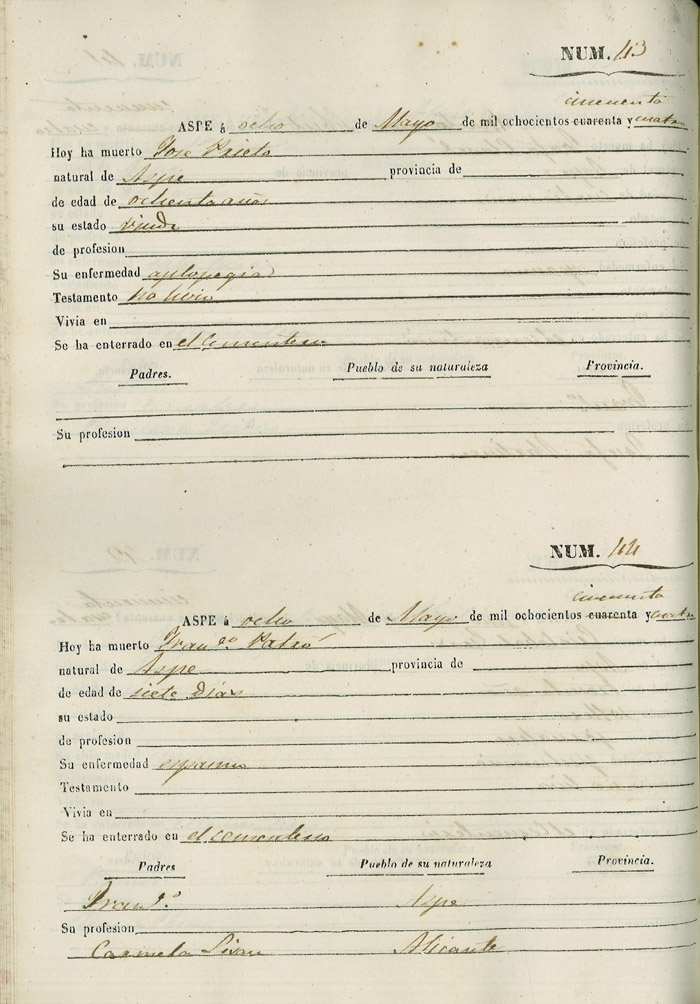 NUM. 43
cincuenta
ASPE á ocho de Mayo de mil ochocientos cuarenta y cuatro
Hoy ha muerto Jose Prieto
natural de Aspe provincia de
de edad de ochenta años
su estado viudo
de profesion
Su enfermedad aplopegia
Testamento no hizo
Vivia en
Se ha enterrado en el Cementerio
Padres. Pueblo de su naturaleza Provincia.
Su profesion
NUM. 44
cincuenta
ASPE á ocho de Mayo de mil ochocientos cuarenta y cuatro
Hoy ha muerto Fran.co
natural de Aspe provincia de
de edad de siete Dias
su estado
de profesion
Su enfermedad espasmo
Testamento
Vivia en
Se ha enterrado en el cementerio
Padres Pueblo de su naturaleza Provincia.
Fran.co Aspe
Su profesion
Carmela Alicante